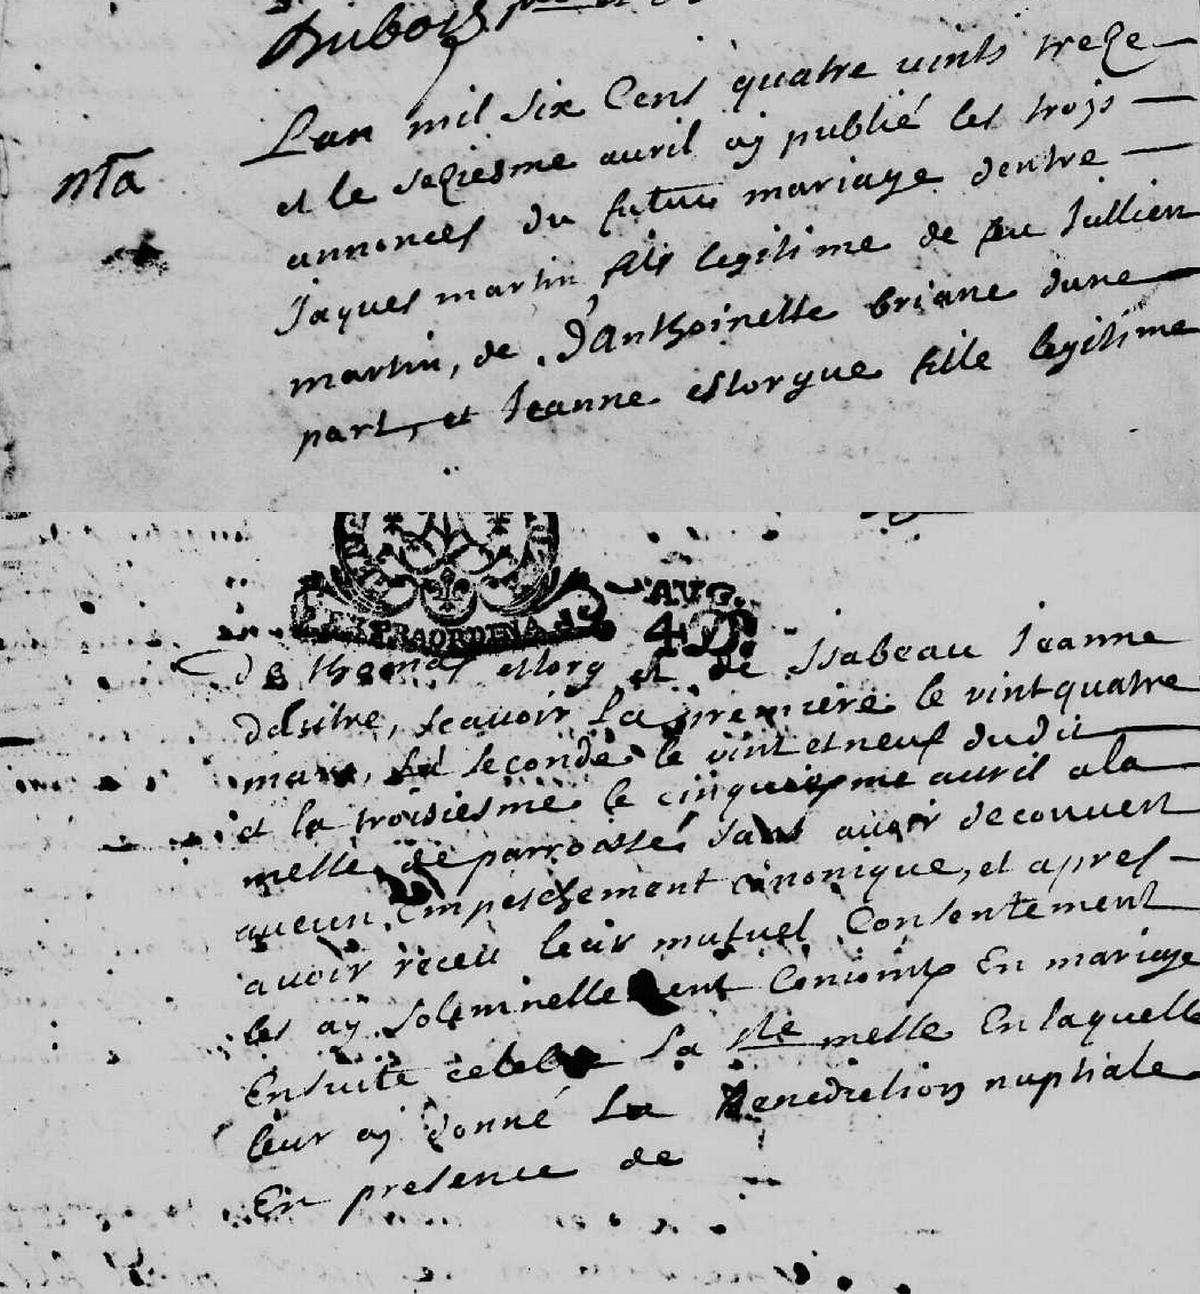 Dubois
Lan mil six Cens quatre vints treze
nta
et le seziesme auril aÿ publié les trois
annonces du futur mariage dentre
Jaques martin fils legitime de feu Jullien
martin, de d'Anthoinette briane dune
part, et Jeanne estorgue fille legitime
EXTRAORDINA
AVG.
de thomas estorg et de Isabeau Jeanne
scauoir La premiere le vint quatre
mars, La seconde le vint et neuf dudit
et la troisiesme le cinquiesme auril a la
messe de parroisse sans auoir decouuert
aucun empeschement canonique, et apres
auoir receu leur mutuel Consentement
les aÿ solemnellement Conioints En mariage
Ensuite celebré La ste messe En laquelle
leur aÿ donné La Benediction nuptiale
En presence de